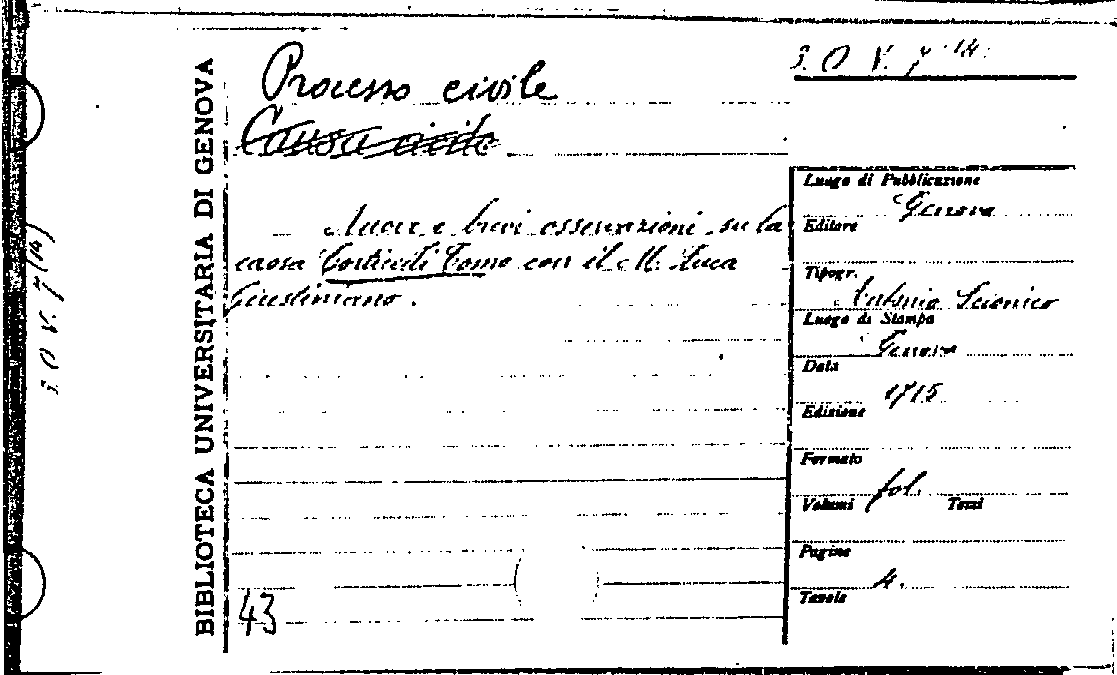 3. O V. 7 14.
Processo civile
Causa civile
Nuove e brevi osservazioni su la
causa Corticelli Tomo con il M. Luca
Giustiniano.
43
BIBLIOTECA UNIVERSITARIA DI GENOVA
3. O V. 7 (14)
Luogo di Pubblicazione
Genova
Editore
Tipogr.
Antonio Scionico
Luogo di Stampa
Genova
Data
1715
Edizione
Formato
fol.
Volumi Tomi
Pagine
4.
Tavole